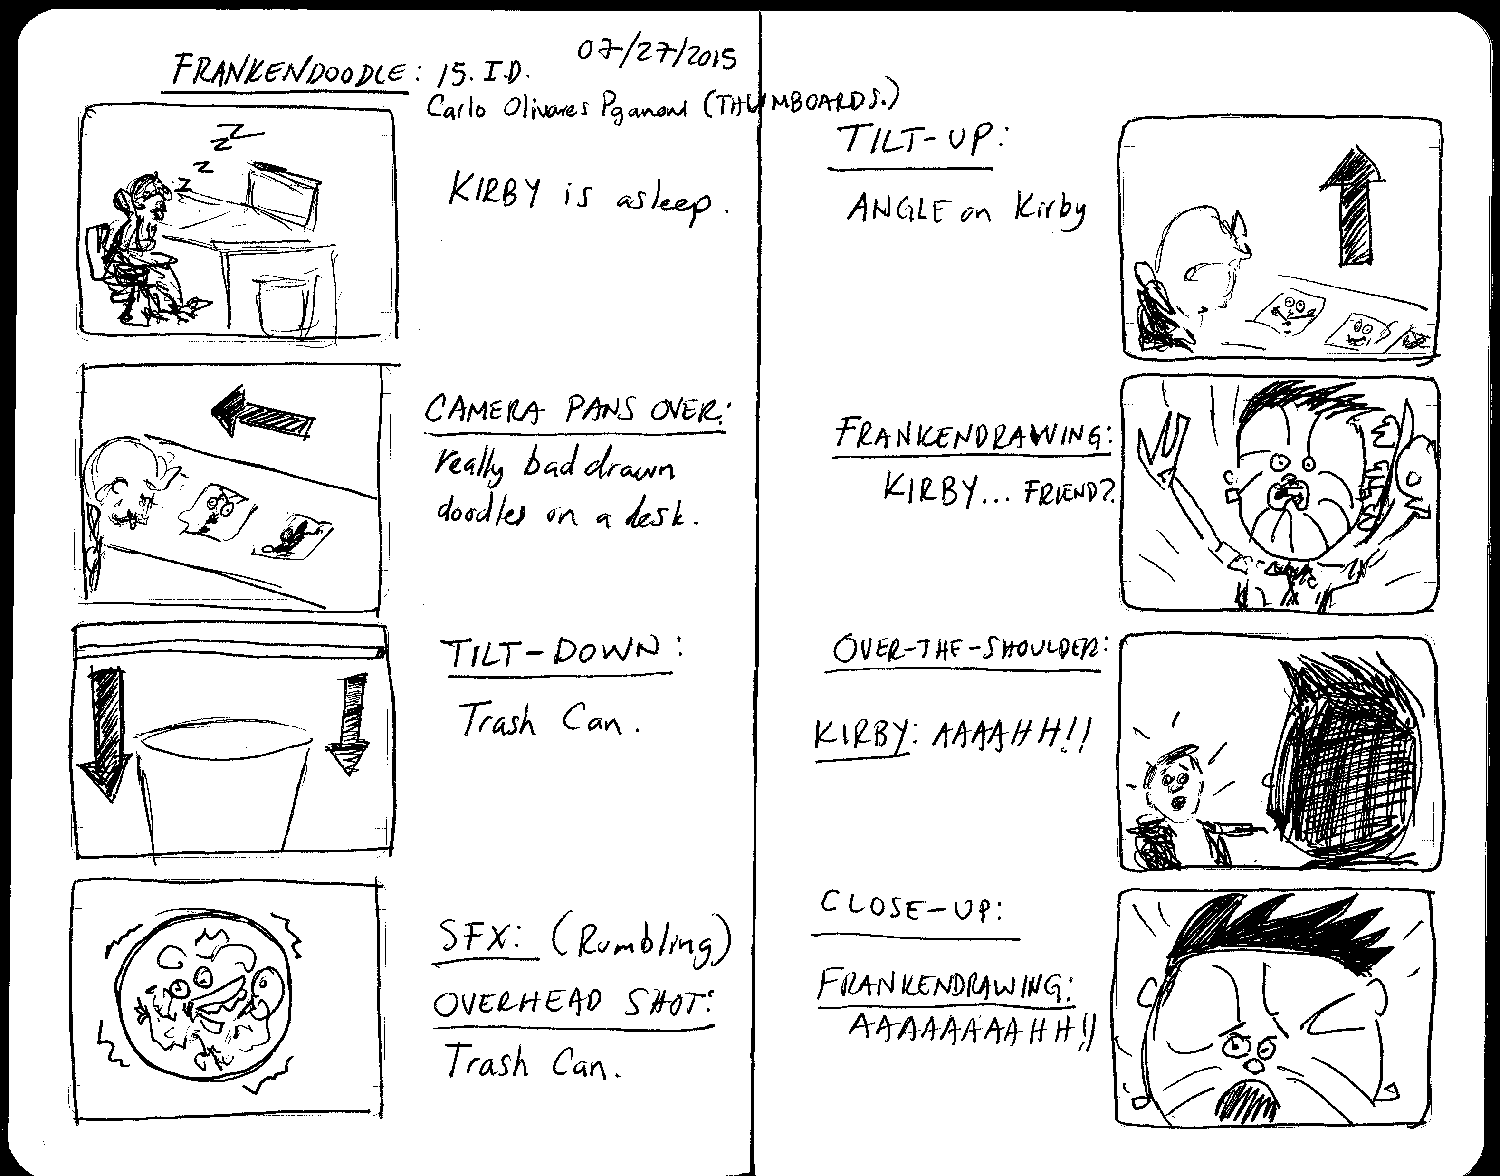 07/27/2015
FRANKENDOODLE: 15. I.D.
Carlo Olivares Paganoni (THUMBOARDS.)
z z z z
KIRBY is asleep.
CAMERA PANS OVER:
really bad drawn
doodles on a desk.
TILT-DOWN:
Trash Can.
SFX: (Rumbling)
OVERHEAD SHOT:
Trash Can.
TILT-UP:
ANGLE on Kirby
FRANKENDRAWING:
KIRBY... FRIEND?
OVER-THE-SHOULDER:
KIRBY: AAAAHH!!
CLOSE-UP:
FRANKENDRAWING:
AAAAAAAAHH!!